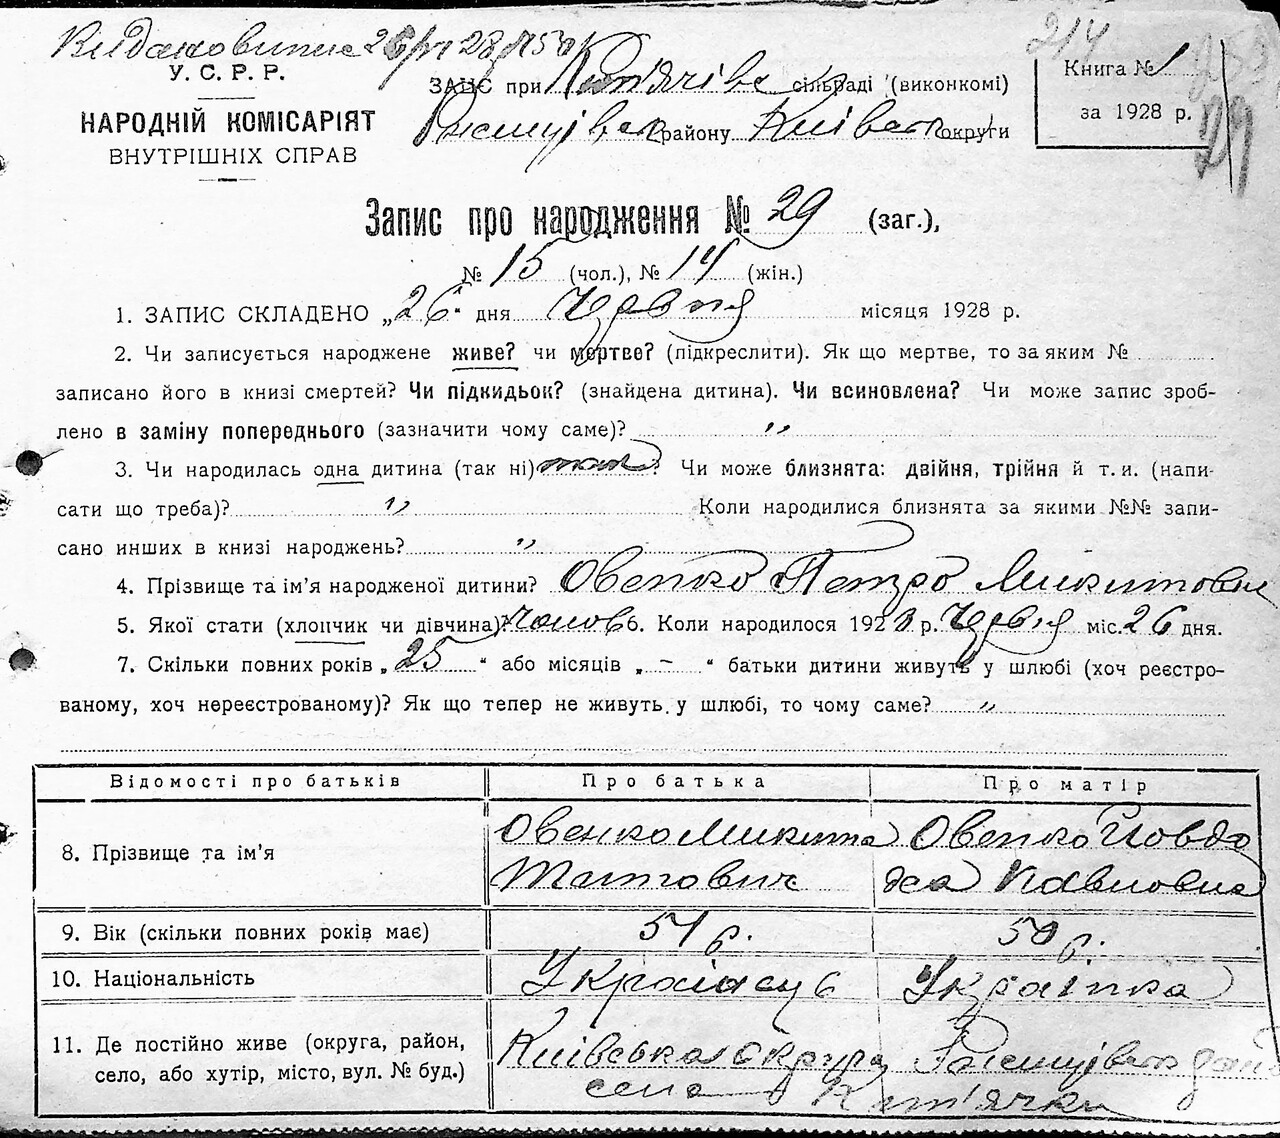 214
У. С. Р. Р.
НАРОДНІЙ КОМІСАРІЯТ
ВНУТРІШНІХ СПРАВ
ЗАГС при сільраді (виконкомі)
району Київськ округи
Книга № 1
за 1928 р.
29
Запис про народження № 29 (заг.),
№ 15 (чол.), № 14 (жін.)
1. ЗАПИС СКЛАДЕНО „26“ дня Червня місяця 1928 р.
2. Чи записується народжене живе? чи мертве? (підкреслити). Як що мертве, то за яким №
записано його в книзі смертей? Чи підкидьок? (знайдена дитина). Чи всиновлена? Чи може запис зроб-
лено в заміну попереднього (зазначити чому саме)? „
3. Чи народилась одна дитина (так ні) так? Чи може близнята: двійня, трійня й т. и. (напи-
сати що треба)? „ Коли народилися близнята за якими №№ запи-
сано инших в книзі народжень? „
4. Прізвище та ім’я народженої дитини? Овенко Петро Микитович
5. Якої стати (хлопчик чи дівчина)? чолов 6. Коли народилося 1928 р. Червня міс. 26 дня.
7. Скільки повних років „25“ або місяців „ – “ батьки дитини живуть у шлюбі (хоч реєстро-
ваному, хоч нереєстрованому)? Як що тепер не живуть у шлюбі, то чому саме? „
Відомості про батьків Про батька Про матір
8. Прізвище та ім’я Овенко Микита Овенко Йовдо
Титович ха Павловна
9. Вік (скільки повних років має) 51 р. 50 р.
10. Національність Українець Українка
11. Де постійно живе (округа, район, Київська округа
село, або хутір, місто, вул. № буд.) село